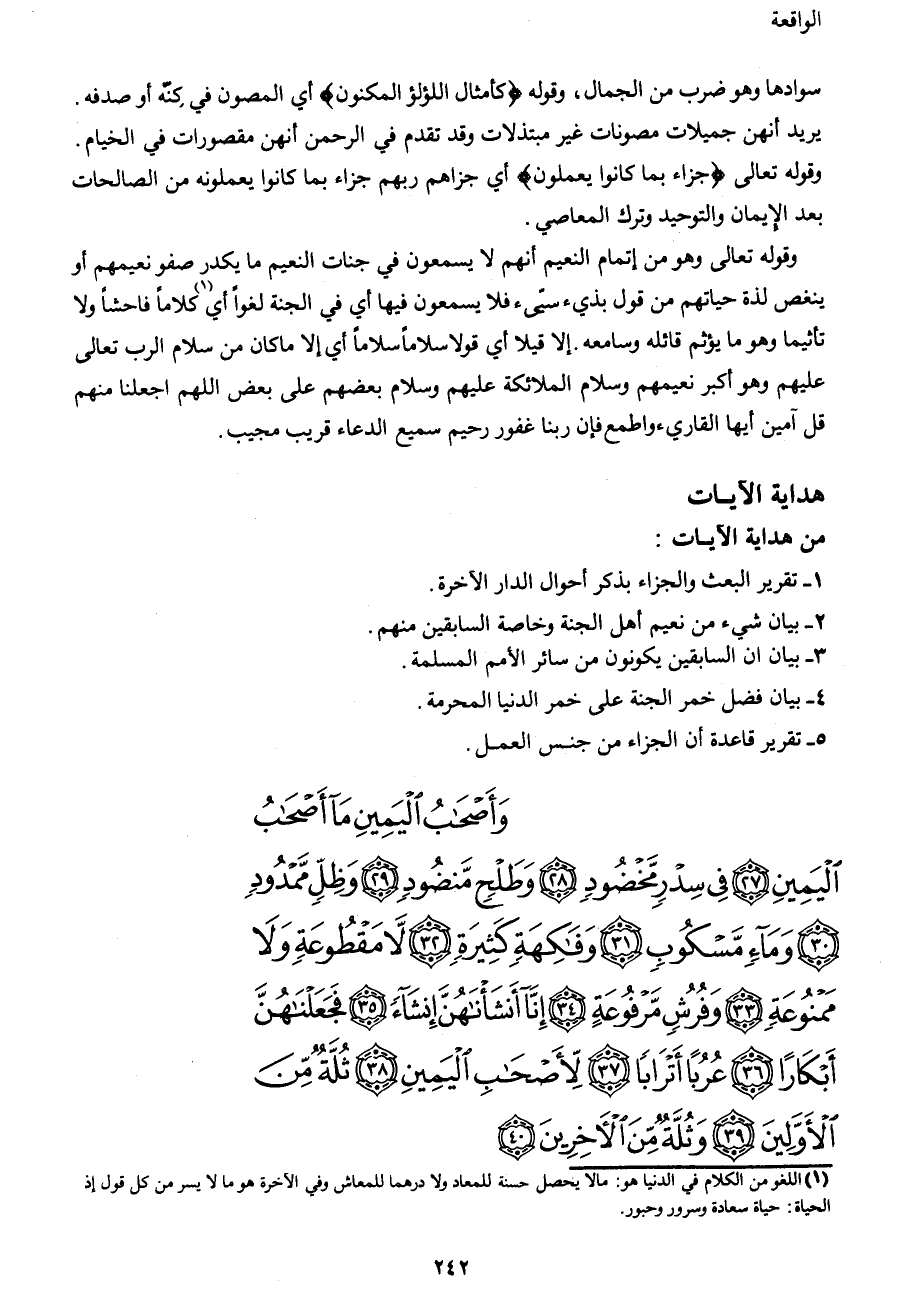 الواقعة
سوادها وهو ضرب من الجمال، وقوله ﴿كأمثال اللؤلؤ المكنون﴾ أي المصون في كِنّه أو صدفه.
يريد أنهن جميلات مصونات غير مبتذلات وقد تقدم في الرحمن أنهن مقصورات في الخيام.
وقوله تعالى ﴿جزاء بما كانوا يعملون﴾ أي جزاهم ربهم جزاء بما كانوا يعملونه من الصالحات
بعد الإيمان والتوحيد وترك المعاصي.
وقوله تعالى وهو من إتمام النعيم أنهم لا يسمعون في جنات النعيم ما يكدر صفو نعيمهم أو
ينغص لذة حياتهم من قول بذيء سيّىء فلا يسمعون فيها أي في الجنة لغواً أي(١) كلاماً فاحشاً ولا
تأثيما وهو ما يؤثم قائله وسامعه. إلا قيلا أي قولا سلاماً سلاماً أي إلا ماكان من سلام الرب تعالى
عليهم وهو أكبر نعيمهم وسلام الملائكة عليهم وسلام بعضهم على بعض اللهم اجعلنا منهم
قل آمين أيها القاريء واطمع فإن ربنا غفور رحيم سميع الدعاء قريب مجيب.
هداية الآيـات
من هداية الآيـات :
١ـ تقرير البعث والجزاء بذكر أحوال الدار الآخرة.
٢ـ بيان شيء من نعيم أهل الجنة وخاصة السابقين منهم.
٣ـ بيان ان السابقين يكونون من سائر الأمم المسلمة.
٤ـ بيان فضل خمر الجنة على خمر الدنيا المحرمة.
٥ـ تقرير قاعدة أن الجزاء من جنـس العمـل.
وَأَصْحَٰبُ ٱلْيَمِينِ مَآ أَصْحَٰبُ
ٱلْيَمِينِ ٢٧ فِى سِدْرٍ مَّخْضُودٍ ٢٨ وَطَلْحٍ مَّنضُودٍ ٢٩ وَظِلٍّ مَّمْدُودٍ
٣٠ وَمَآءٍ مَّسْكُوبٍ ٣١ وَفَٰكِهَةٍ كَثِيرَةٍ ٣٢ لَّا مَقْطُوعَةٍ وَلَا
مَمْنُوعَةٍ ٣٣ وَفُرُشٍ مَّرْفُوعَةٍ ٣٤ إِنَّآ أَنشَأْنَٰهُنَّ إِنشَآءً ٣٥ فَجَعَلْنَٰهُنَّ
أَبْكَارًا ٣٦ عُرُبًا أَتْرَابًا ٣٧ لِّأَصْحَٰبِ ٱلْيَمِينِ ٣٨ ثُلَّةٌ مِّنَ
ٱلْأَوَّلِينَ ٣٩ وَثُلَّةٌ مِّنَ ٱلْآخِرِينَ ٤٠
(١) اللغو من الكلام في الدنيا هو: مالا يحصل حسنة للمعاد ولا درهما للمعاش وفي الآخرة هو ما لا يسر من كل قول إذ
الحياة: حياة سعادة وسرور وحبور.
٢٤٢